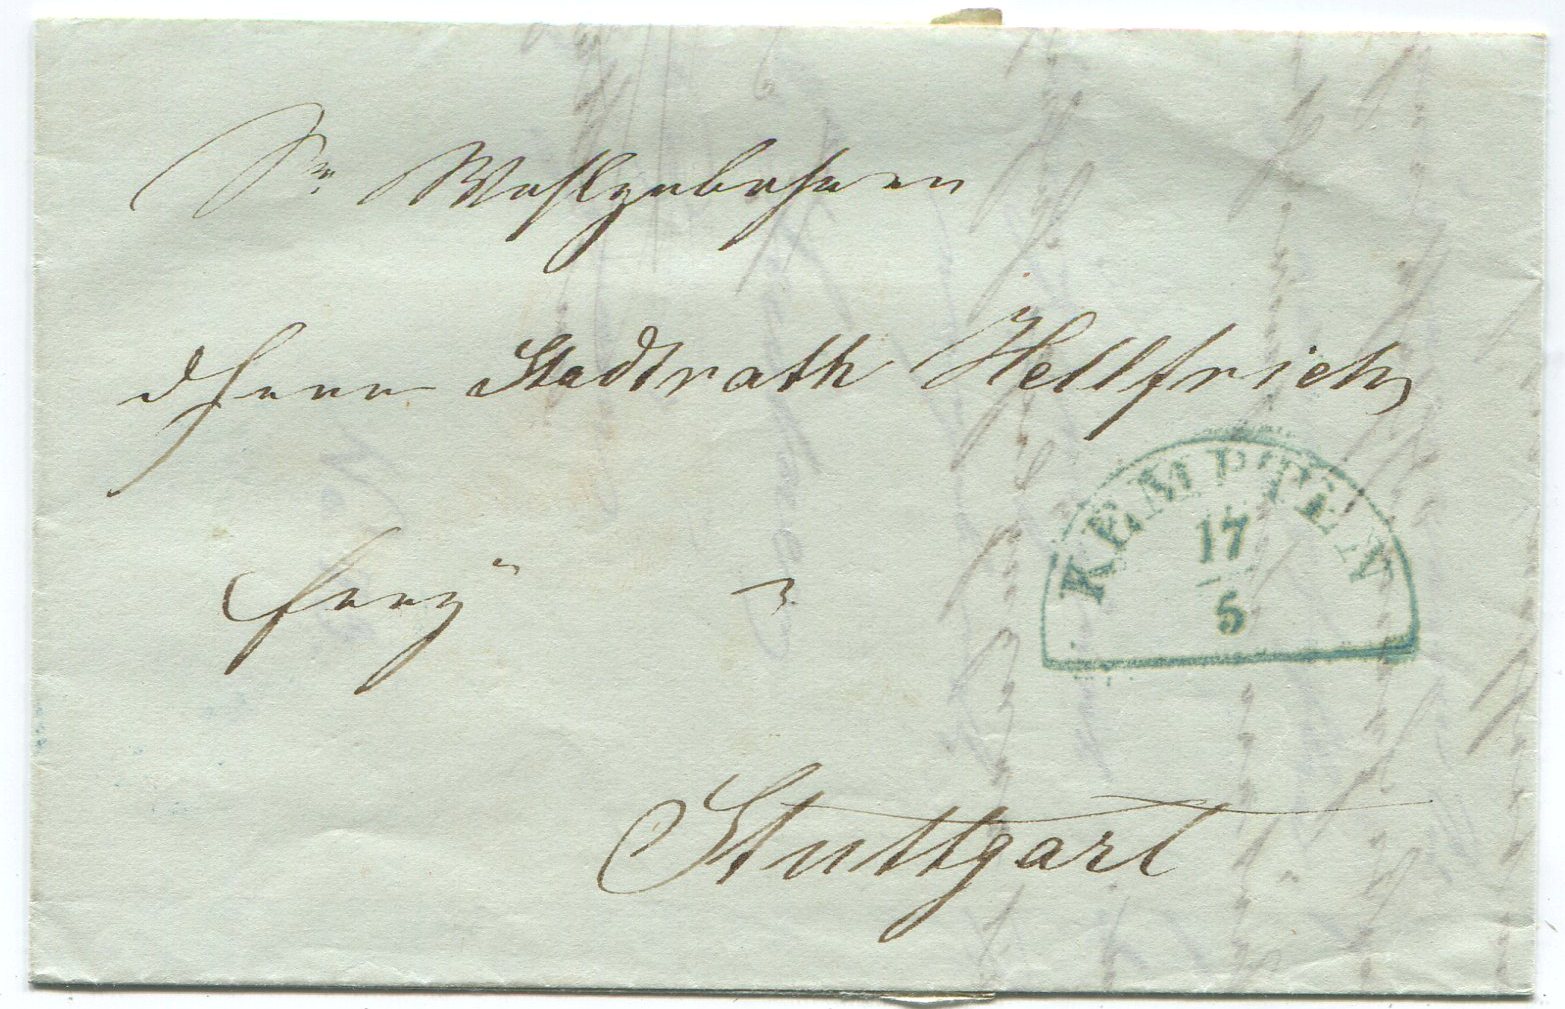 Sr Wohlgeboren
Herrn Stadtrath Hellfrich
frey
Stuttgart
KEMPTEN
17
5